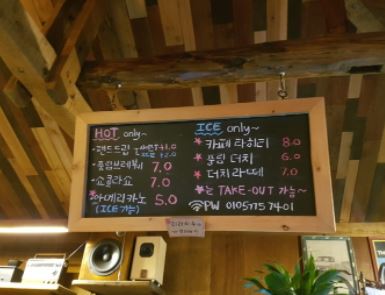 HOT only~
· 핸드드립
· 크림브레붸 7.0
· 쇼콜라쇼 7.0
*아메리카노 5.0
(ICE 가능)
ICE only~
* 카페 타히티 8.0
* 더치 6.0
* 더치라떼 7.0
*는 TAKE-OUT 가능~
PW 0105775 7401